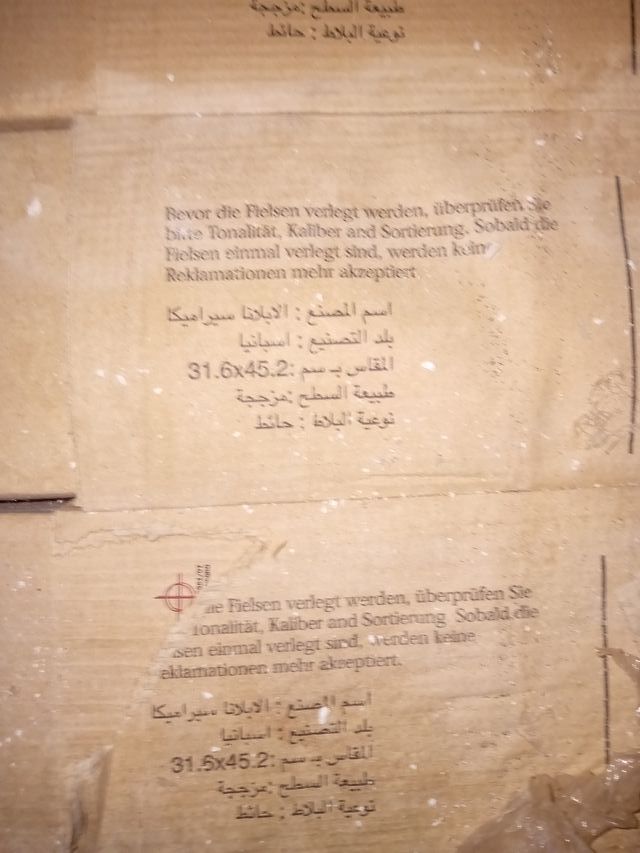 طبيعة السطح :مزججة
نوعية البلاط : حائط
Bevor die Fielsen verlegt werden, überprüfen Sie
bitte Tonalität, Kaliber and Sortierung. Sobald die
Fielsen einmal verlegt sind, werden kein
Reklamationen mehr akzeptiert
اسم المصنع : الابلانا سيراميكا
بلد التصنيع : اسبانيا
المقاس بـ سم :31.6x45.2
طبيعة السطح :مزججة
نوعية البلاط : حائط
die Fielsen verlegt werden, überprüfen Sie
Tonalität, Kaliber and Sortierung Sobald die
lsen einmal verlegt sind, werden keine
eklamationen mehr akzeptiert.
اسم المصنع : الابلانا سيراميكا
بلد التصنيع : اسبانيا
المقاس بـ سم :31.6x45.2
طبيعة السطح :مزججة
نوعية البلاط : حائط